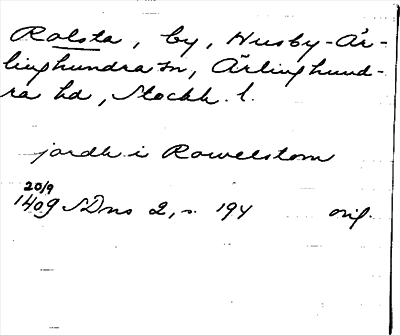 Rolsta, by, Husby-Är-
linghundra sn, Ärlinghund-
ra hd, Stockh. l.
jordh i Rawelstom
20/9
1409 SDns 2, s. 194 orig.